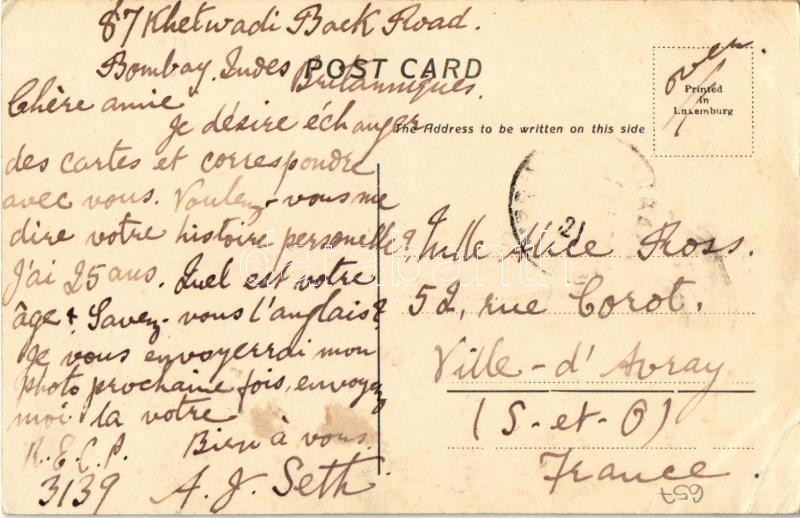 87 Khetwadi Back Road.
Bombay. Indes Britanniques.
POST CARD
Chère amie
Je désire échanger
des cartes et correspondre
avec vous. Voulez-vous me
dire votre histoire personelle?
J'ai 25 ans. Quel est votre
âge & Savez-vous l'anglais?
Je vous envoyerrai mon
photo prochaine fois, envoyez
moi la votre
R.E.C.P. Bien à vous
3139 A. J. Seth.
over.
Printed
in
Luxemburg
The Address to be written on this side
21
Mlle Alice Ross.
52, rue Corot.
Ville-d'Avray
(S-et-O)
France.
657
darabanth